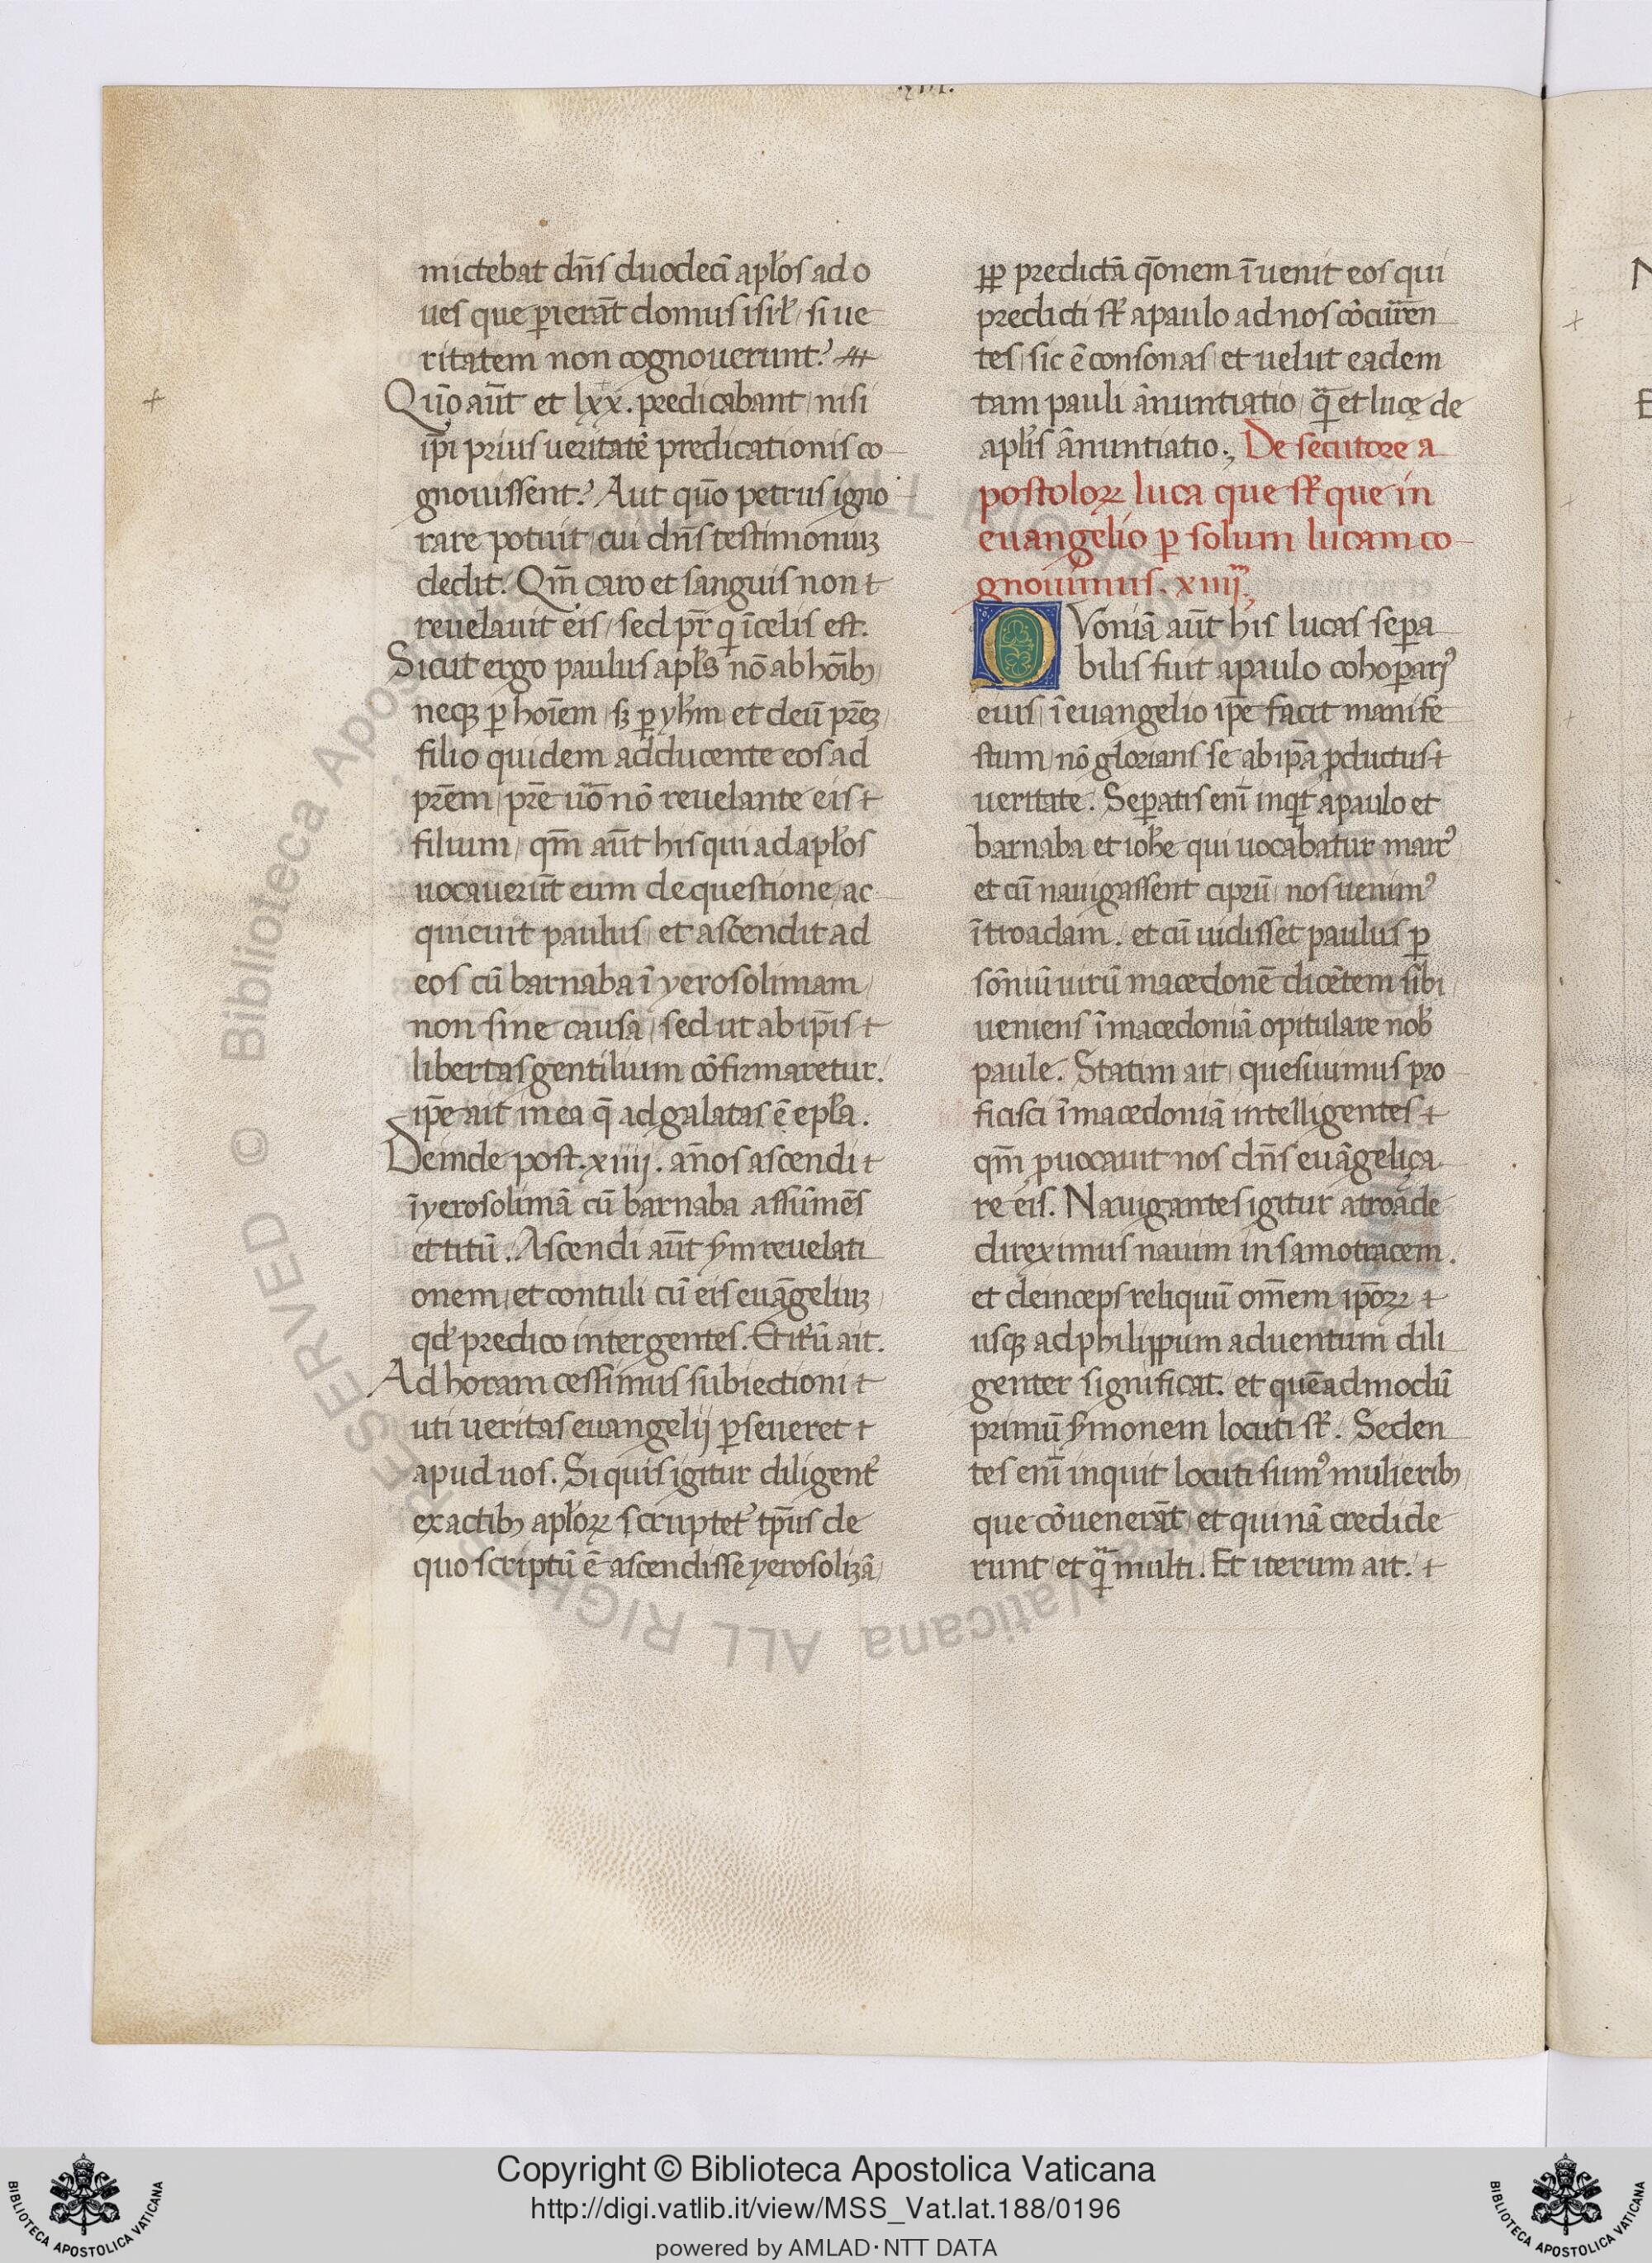 .XIII.
mictebat dn̄s duodecī apl̄os ad o
ues que ꝑierāt domus isrl̄ / si ue
ritatem non cognouerunt?
Quō aūt et lxx. predicabant / nisi
ip̄i prius ueritatē predicationis co
gnouissent? Aut quō petrus igno
rare potuit / cui dn̄s testimoniuꝫ
dedit. Qm̄ caro et sanguis non
reuelauit eis / sed pr̄ q ī celis est.
Sicut ergo paulus apl̄s nō ab hōibꝫ
neqꝫ ꝑ hoīem / sꝫ ꝑ yhm̄ et deū prēꝫ /
filio quidem adducente eos ad
prēm / prē uō nō reuelante eis
filium / qm̄ aūt his qui ad apl̄os
uocauerūt eum de questione / ac
quieuit paulus / et ascendit ad
eos cū barnaba ī yerosolimam /
non sine causa / sed ut ab ip̄is
libertas gentilium cōfirmaretur.
ip̄e ait in ea q̄ ad galatas ē epl̄a.
Deinde post .xiiij. an̄os ascendi
ī yerosolimā cū barnaba assūmēs
et titū. Ascendi aūt s̄m reuelati
onem / et contuli cū eis euāgeliuꝫ /
qd̄ predico inter gentes. Et itꝰū ait.
Ad horam cessimus subiectioni
uti ueritas euangelij ꝑseueret
apud uos. Si quis igitur diligent᷑
ex actibꝫ apl̄oꝝ scruptet᷑ tp̄us de
quo scriptū ē ascendisse yerosolimā /
ꝓꝑ predictā q̄onem īuenit eos qui
predicti st̄ a paulo ad nos cōcurren
tes / sic ē consonas / et uelut eadem
tam pauli ānuntiatio / q̄ et lucę de
apl̄is ānuntiatio. De secutore a
postoloꝝ luca que st̄ que in
euangelio ꝑ solum lucam co
gnouimus. xiiij.
QVoniā aūt his lucas seꝑa
bilis fuit a paulo cohoꝑariꝰ
eius / ī euangelio ip̄e facit manife
stum / nō glorians se ab ip̄a ꝓductus
ueritate. Seꝑatis enī inqt a paulo et
barnaba et iohē qui uocabatur marcꝰ
et cū nauigassent ciprū / nos uenimꝰ
ī troadam. et cū uidisset paulus ꝑ
sōniū uirū macedonē dicētem sibi
ueniens ī macedoniā opitulare nob̄
paule. Statim ait / quesiuimus pro
ficisci ī macedoniā intelligentes
qm̄ ꝓuocauit nos dn̄s euāgeliça
re eis. Nauigantes igitur a troade
direximus nauim in samotracem.
et deinceps reliquū om̄em ip̄oꝝ
usqꝫ ad philippum aduentum dili
genter significat. et quēadmodū
primū s̄monem locuti st̄. Seden
tes enī inquit locuti sumꝰ mulieribꝫ
que cōuenerāt / et qui nā credide
runt / et q̄ multi. Et iterum ait.
© Biblioteca Apostolica Vaticana ALL RIGHTS RESERVED
Copyright © Biblioteca Apostolica Vaticana
http://digi.vatlib.it/view/MSS_Vat.lat.188/0196
powered by AMLAD·NTT DATA
BIBLIOTECA APOSTOLICA VATICANA
BIBLIOTECA APOSTOLICA VATICANA